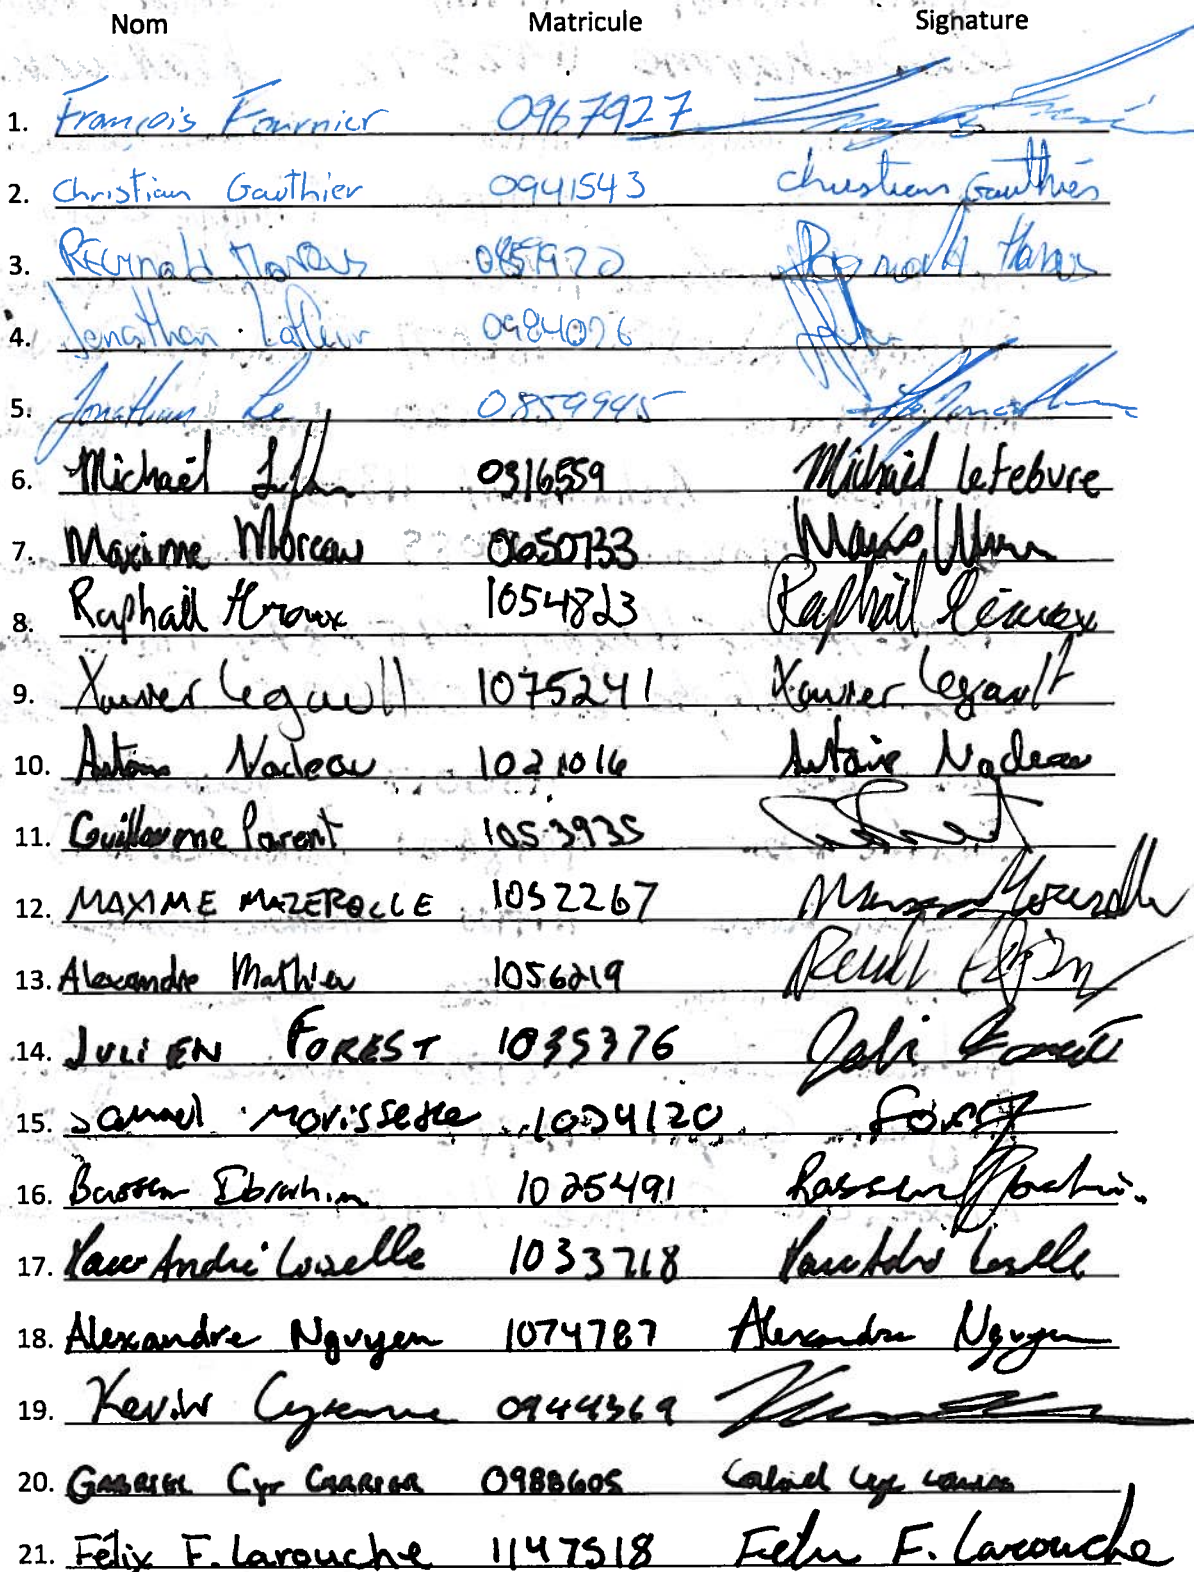 Nom Matricule Signature
1. François Fournier 0967927
2. Christian Gauthier 0941543 Christian Gauthier
3. Réginald
4. Jonathan Lafleur 0984026
5. Jonathan Le 0859945
6. Michaël 0316559 Michaël Lefebvre
7. Maxime Moreau 0650733
8. Raphaël Héroux 1054823 Raphaël Héroux
9. Xavier Legault 1075241 Xavier Legault
10. Antoine Nadeau 1021016 Antoine Nadeau
11. Guillaume Parent 1053935
12. MAXIME MAZEROLLE 1052267
13. Alexandre Mathieu 1056219
14. JULIEN FOREST 1035376
15. Samuel Morissette 1024120
16. Bassem Ibrahim 1025491 Bassem Ibrahim
17. André Loiselle 1033718
18. Alexandre Nguyen 1074787 Alexandre Nguyen
19. Kevin 0944369
20. GABRIEL Cyr CARRIER 0988605 Gabriel Cyr Carrier
21. Félix F. Larouche 1147518 Félix F. Larouche